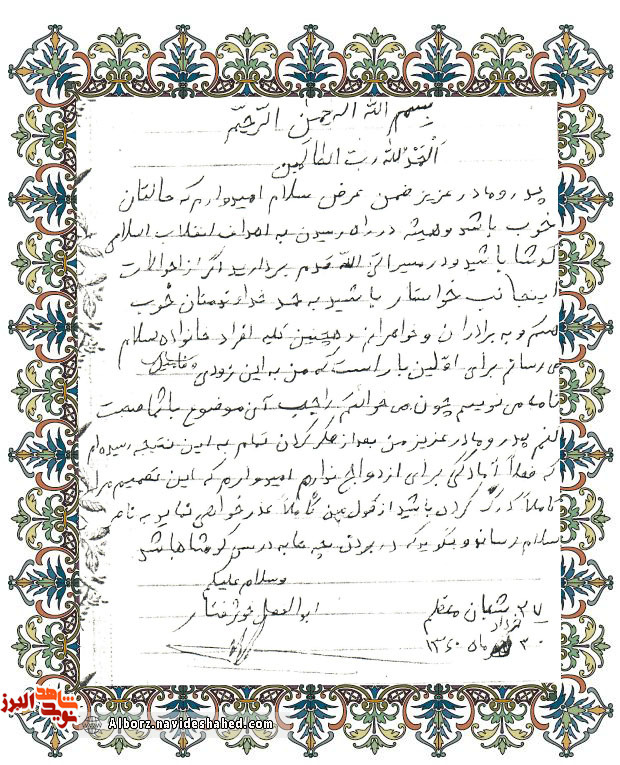 بسم الله الرحمن الرحیم
الحمد لله رب العالمین
پدر و مادر عزیز ضمن عرض سلام امیدوارم که حالتان
خوب باشد و همیشه در راه رسیدن به اهداف انقلاب اسلامی
کوشا باشید و در مسیر الی الله قدم بردارید اگر از احوالات
اینجانب خواستار باشید به حمد خدا تندرستان خوب
هستم و به برادران و خواهرانم و همچنین کلیه افراد خانواده سلام
می رسانم برای اولین بار است که من به این زودی
نامه می نویسم چون می خواهم راجب آن موضوع با شما صحبت
کنم پدر و مادر عزیز من بعد از فکر کردن تمام به این نتیجه رسیده‌ام
که فعلاً آمادگی برای ازدواج ندارم امیدوارم که این تصمیم مرا
کاملاً درک کرده باشید از قول من کاملاً عذر خواهی نمایید به ناصر
سلام رسانده و بگویید که در بردن بچه ها به درسی کوشا باشد
وسلام علیکم
ابوالفضل
۲۷ شعبان معظم
۳۰ ماه ۱۳۶۰
شاهد
نوید
البرز
Alborz.navideshahed.com